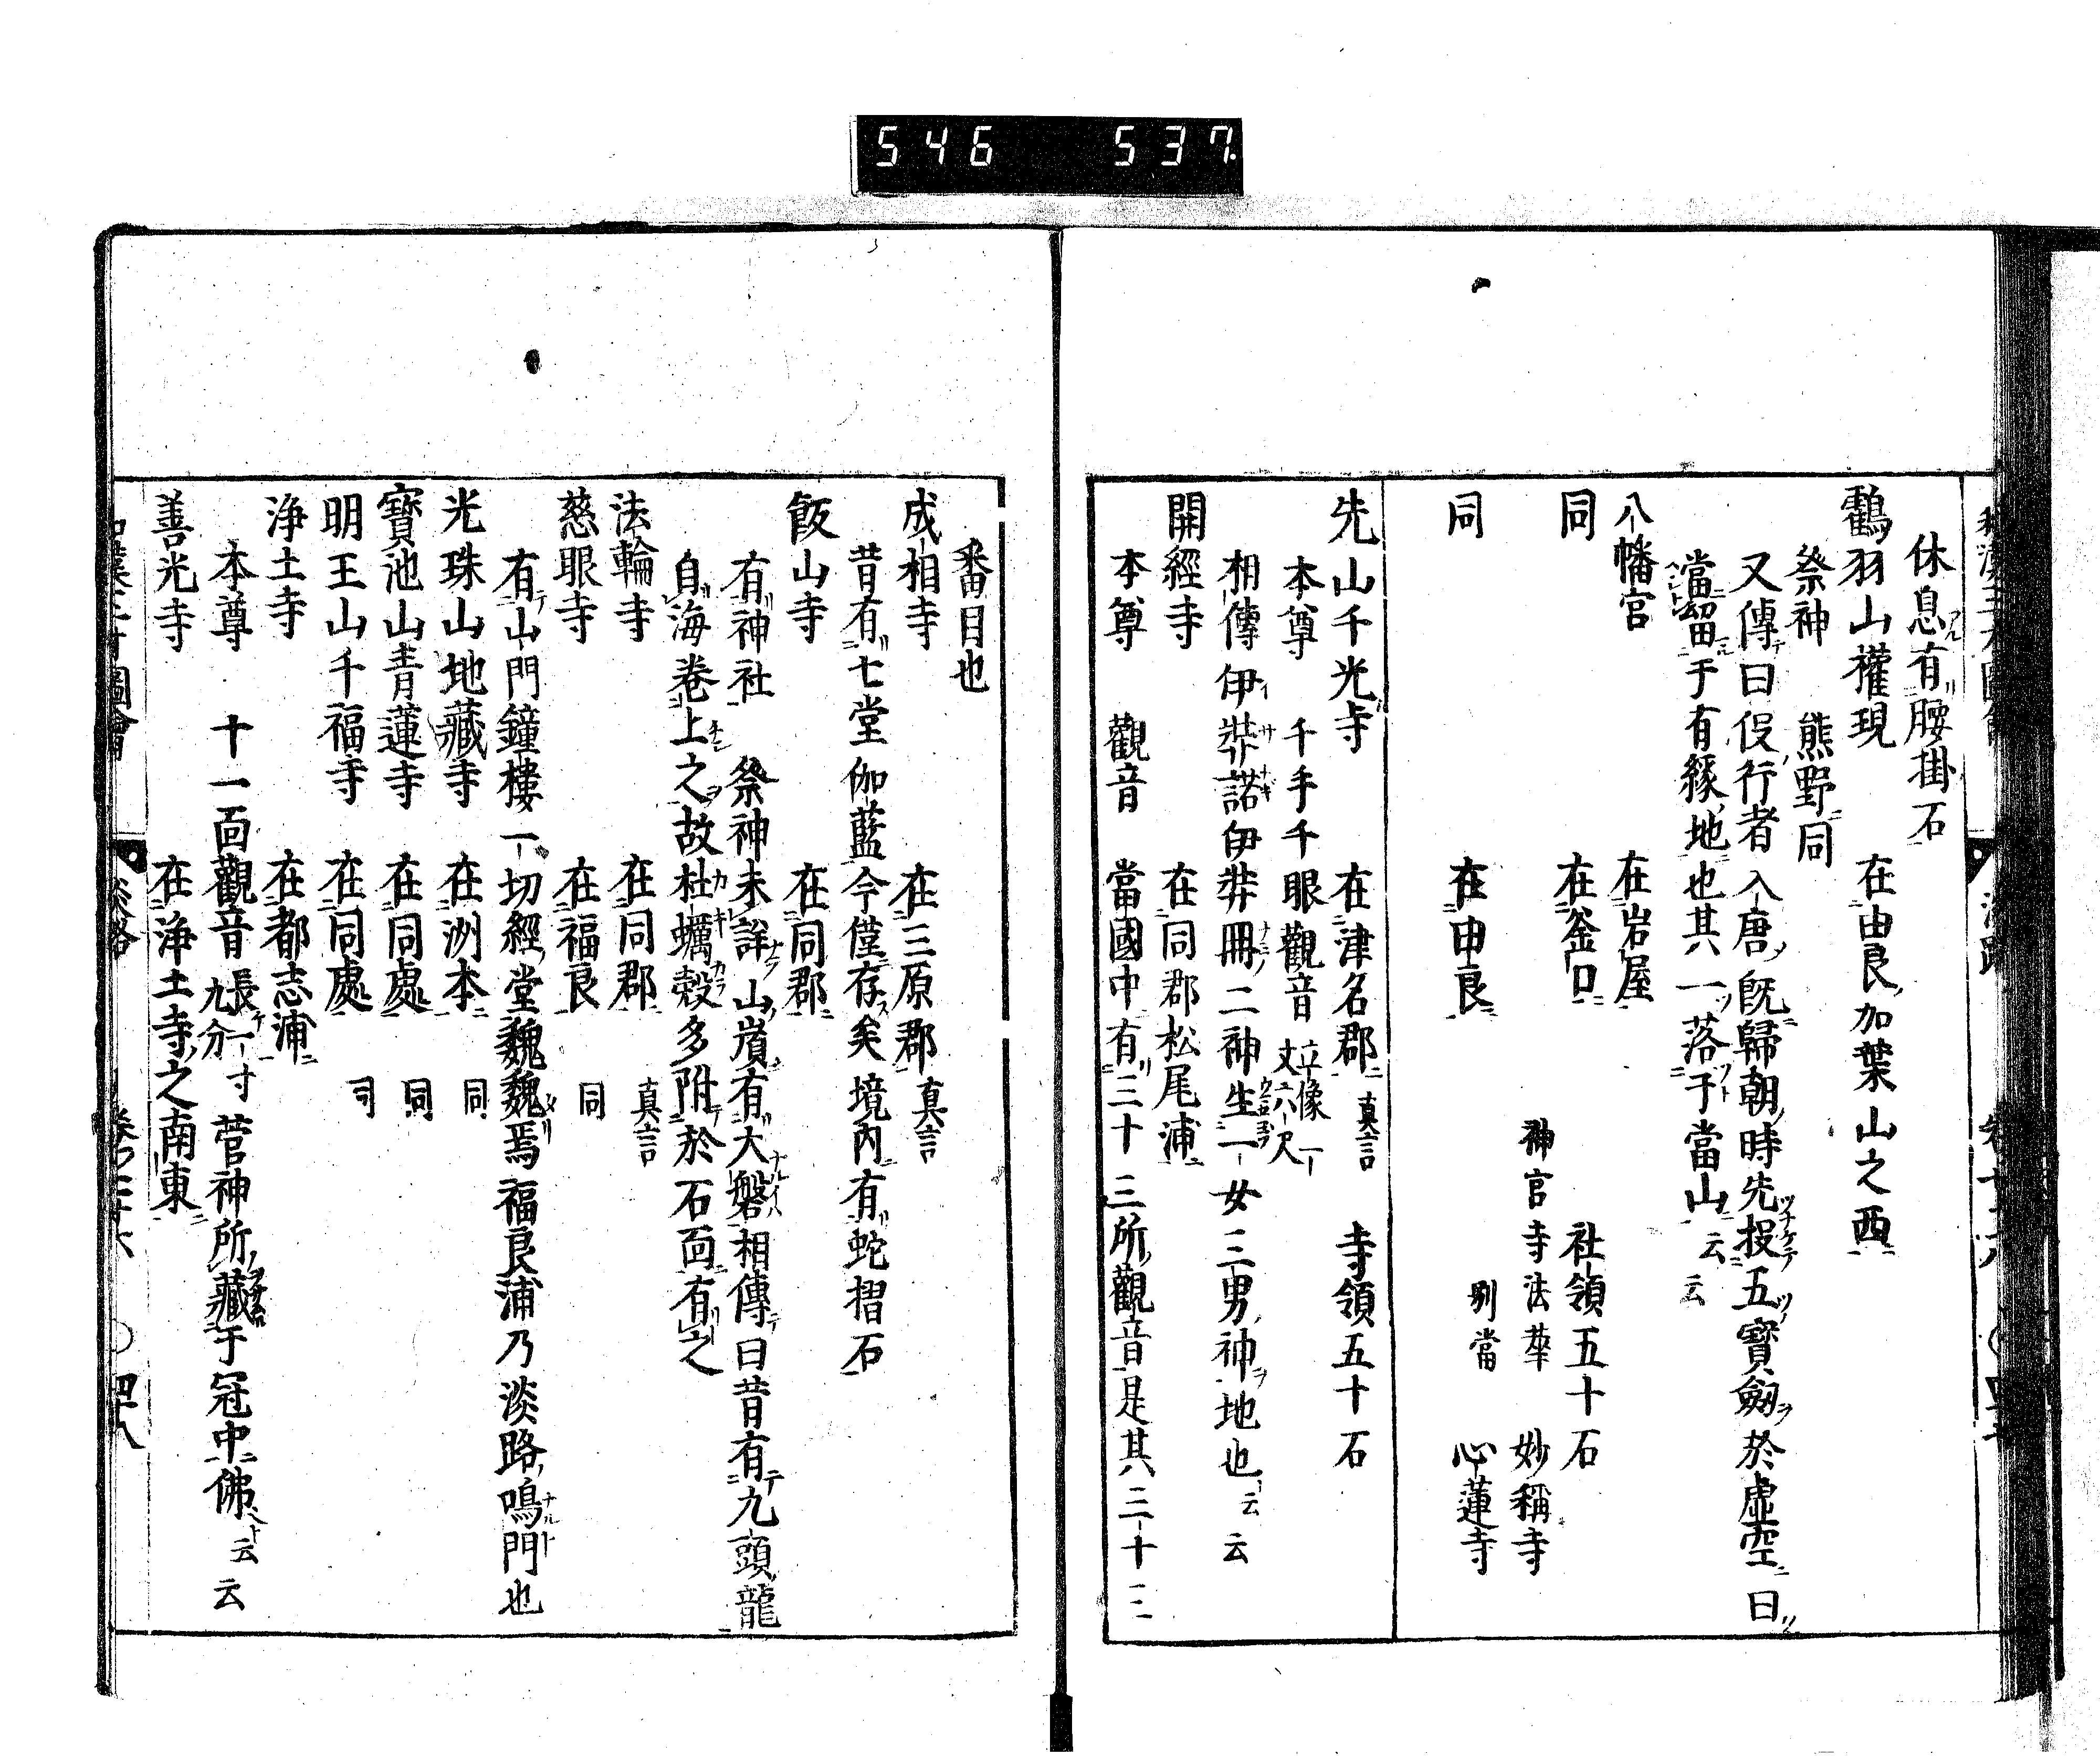 546 537.
休息有腰掛石
鸖羽山權現 在由良加葉山之西
祭神 熊野同
又傳曰役行者入唐既歸朝時先投五寶劔於虛空曰
當留于有緣地也其一落于當山云云
八幡宮 在岩屋
同 在釜口 社領五十石
神宮寺法華 妙稱寺
同 在由良 別當 心蓮寺
先山千光寺 在津名郡 真言 寺領五十石
本尊 千手千眼觀音 立像一丈六尺
相傳伊弉諾伊弉冊二神生一女三男神地也云云
開經寺 在同郡松尾浦
本尊 觀音 當國中有三十三所觀音是其三十三
番目也
成相寺 在三原郡 真言
昔有七堂伽藍今僅存矣境內有蛇摺石
飯山寺 在同郡
有神社 祭神未詳山嶺有大磐相傳曰昔有九頭龍
自海卷上之故牡蠣殻多附於石面有之
法輪寺 在同郡 真言
慈眼寺 在福良 同
有山門鐘樓一切經堂巍巍焉福良浦乃淡路鳴門也
光珠山地藏寺 在洲本 同
寶池山青蓮寺 在同處 同
明王山千福寺 在同處 同
浄土寺 在都志浦
本尊 十一面觀音 長一寸九分 菅神所藏于冠中佛云云
善光寺 在浄土寺之南東
淡路 四八